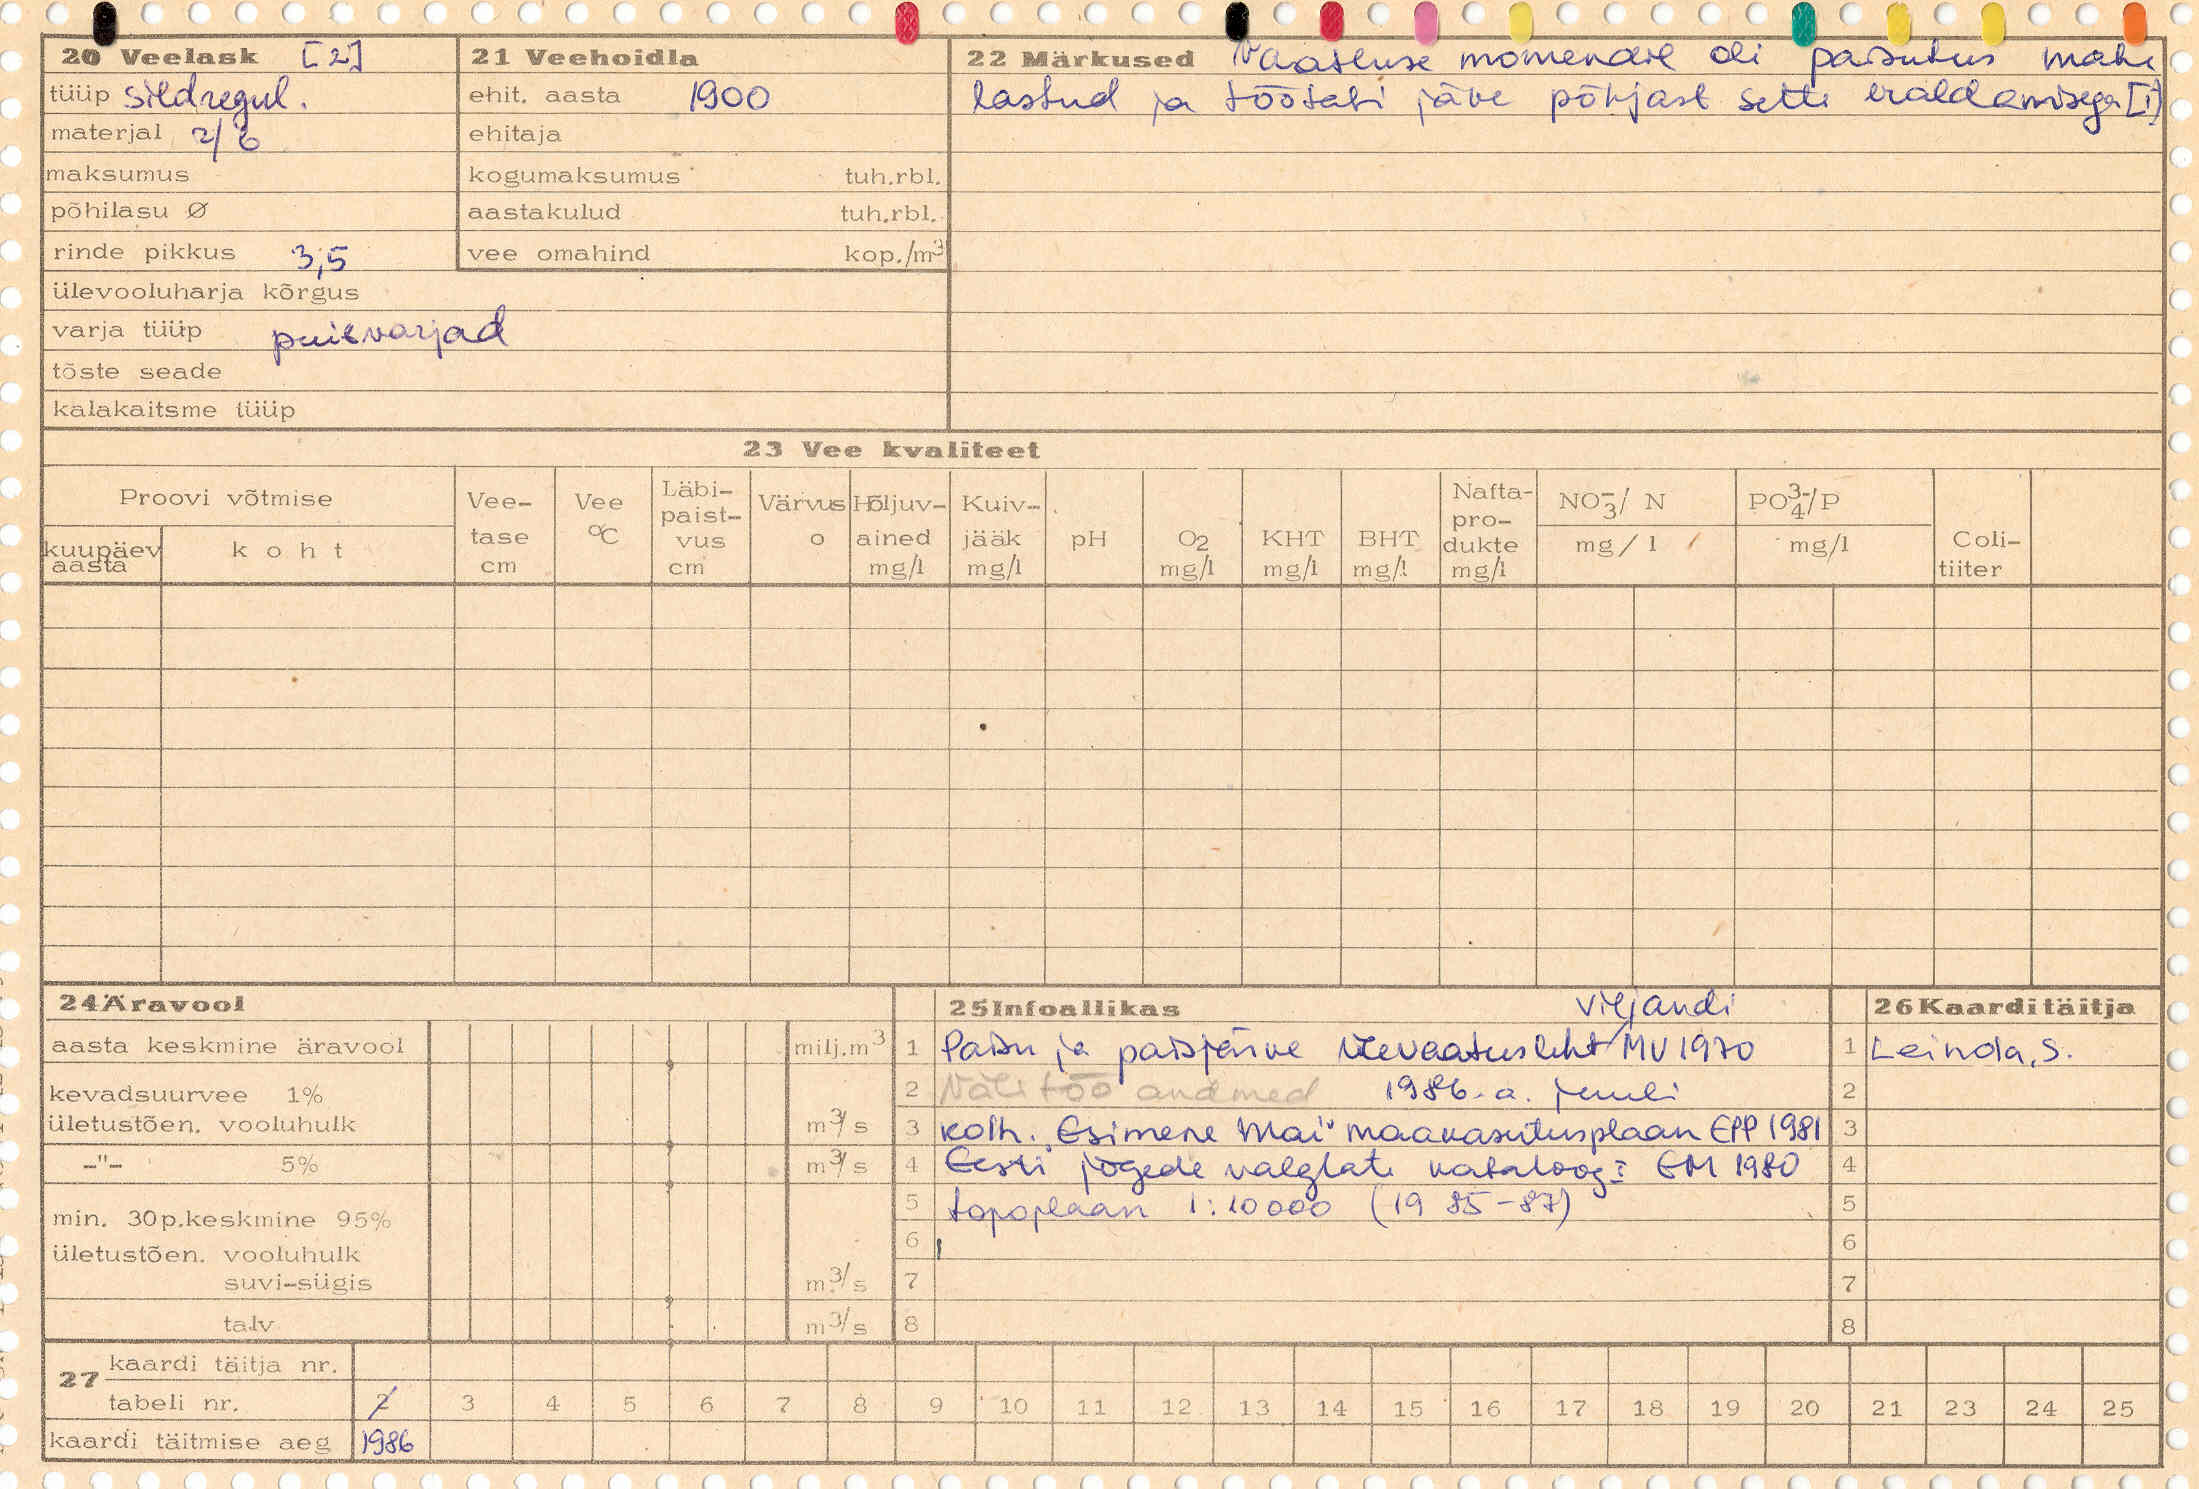 20 Veelask [2]
tüüp sildregul.
materjal r/b
maksumus
põhilasu Ø
rinde pikkus 3,5
ülevooluharja kõrgus
varja tüüp puitvarjad
tõste seade
kalakaitsme tüüp
21 Veehoidla
ehit. aasta 1900
ehitaja
kogumaksumus tuh.rbl.
aastakulud tuh.rbl.
vee omahind kop./m³
22 Märkused Vaatluse momendil oli paisutus maha
lastud ja töötati järve põhjast sette eraldamisega [1]
23 Vee kvaliteet
Proovi võtmise
kuupäev aasta
koht
Vee-tase cm
Vee °C
Läbi-paist-vus cm
Värvus o
Hõljuv-ained mg/l
Kuiv-jääk mg/l
pH
O2 mg/l
KHT mg/l
BHT mg/l
Nafta-pro-dukte mg/l
NO3-/ N mg/l
PO4 3-/P mg/l
Coli-tiiter
24 Äravool
aasta keskmine äravool milj.m³
kevadsuurvee 1%
ületustõen. vooluhulk m³/s
-"- 5% m³/s
min. 30p.keskmine 95%
ületustõen. vooluhulk
suvi-sügis m³/s
talv m³/s
25 Infoallikas Viljandi
1 Paisu ja paisjärve ülevaatusleht MV 1970
2 Välitöö andmed 1986. a. juuli
3 kolh. "Esimene Mai" maakasutusplaan EPP 1981
4 Eesti jõgede valglate kataloog EM 1980
5 topoplaan 1:10000 (1985-87)
6
7
8
26 Kaarditäitja
1 Leinola, S.
2
3
4
5
6
7
8
27 kaardi täitja nr.
tabeli nr. 2 3 4 5 6 7 8 9 10 11 12 13 14 15 16 17 18 19 20 21 23 24 25
kaardi täitmise aeg 1986